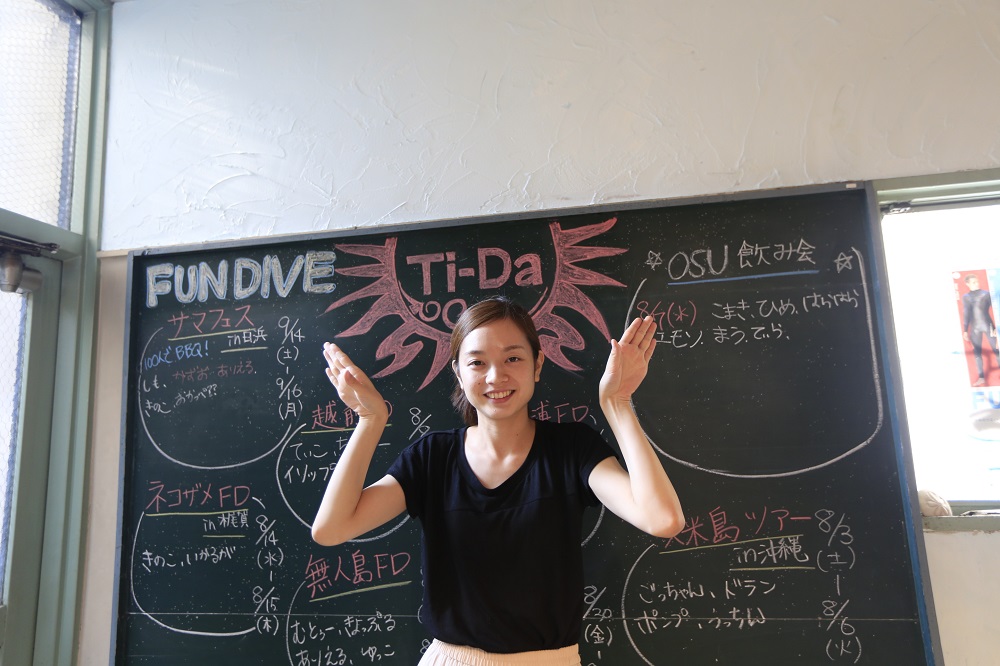 FUN DIVE
Ti-Da
OSU 飲み会
サマフェス
in白浜
9/14
(土)
9/16
(月)
100人でBBQ!
しも、かずお、ありえる、
きのこ、おかっぺ??
8/7(水)
こまき、ひめ、はらはら
まう、てぃら、
てぃこ、
イソップ
FD
ネコザメFD
8/14
(水)
8/15
(木)
きのこ、いかるが
無人島FD
むとぅー、きょっぷる
ありえる、ゆっこ
8/20
(金)
米島ツアー
in沖縄
8/3
(土)
8/6
(火)
ごっちゃん、ドラン
ポンプ、うっちん